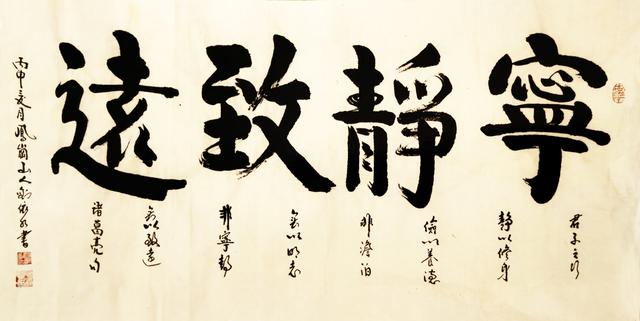 寧靜致遠
君子之行
靜以修身
儉以養德
非澹泊
無以明志
非寧靜
無以致遠
諸葛亮句
丙申月鳳崗山人書